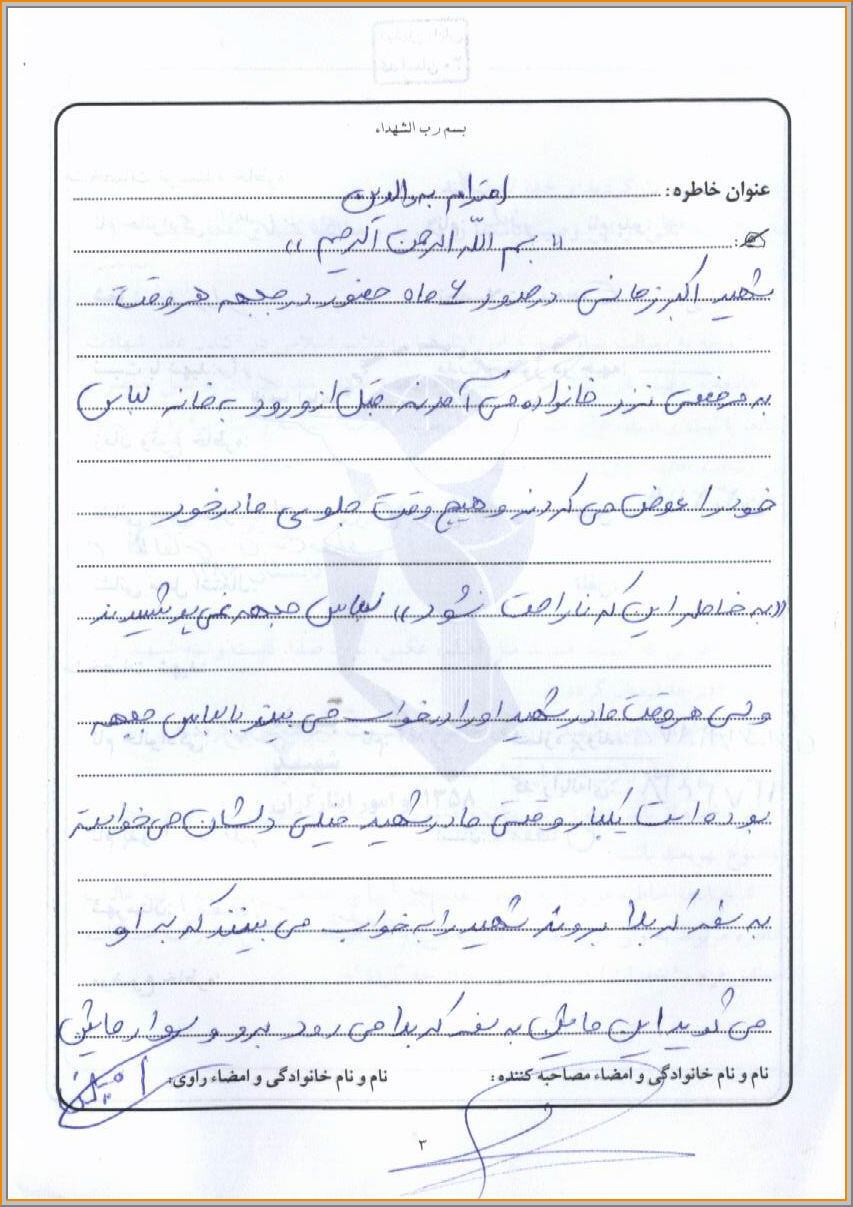 بسم رب الشهداء
عنوان خاطره: احترام به والدین
« بسم الله الرحمن الرحیم »
شهید اکبر زمانی در حدود ۶ ماه حضور در جبهه هر وقت
به مرخصی نزد خانواده می آمدند قبل از ورود به خانه لباس
خود را عوض می کردند و هیچ وقت جلوی مادر خود
«به خاطر این که ناراحت نشود» لباس جبهه نمی پوشیدند
ولی هر وقت مادر شهید او را در خواب می بیند با لباس جبهه
بوده است یکبار وقتی مادر شهید خیلی دلشان می خواسته
به سفر کربلا بروند شهید را به خواب می بینند که به او
می گوید این ماشین به سفر کربلا می رود برو و سوار ماشین
نام و نام خانوادگی و امضاء مصاحبه کننده: نام و نام خانوادگی و امضاء راوی:
۳